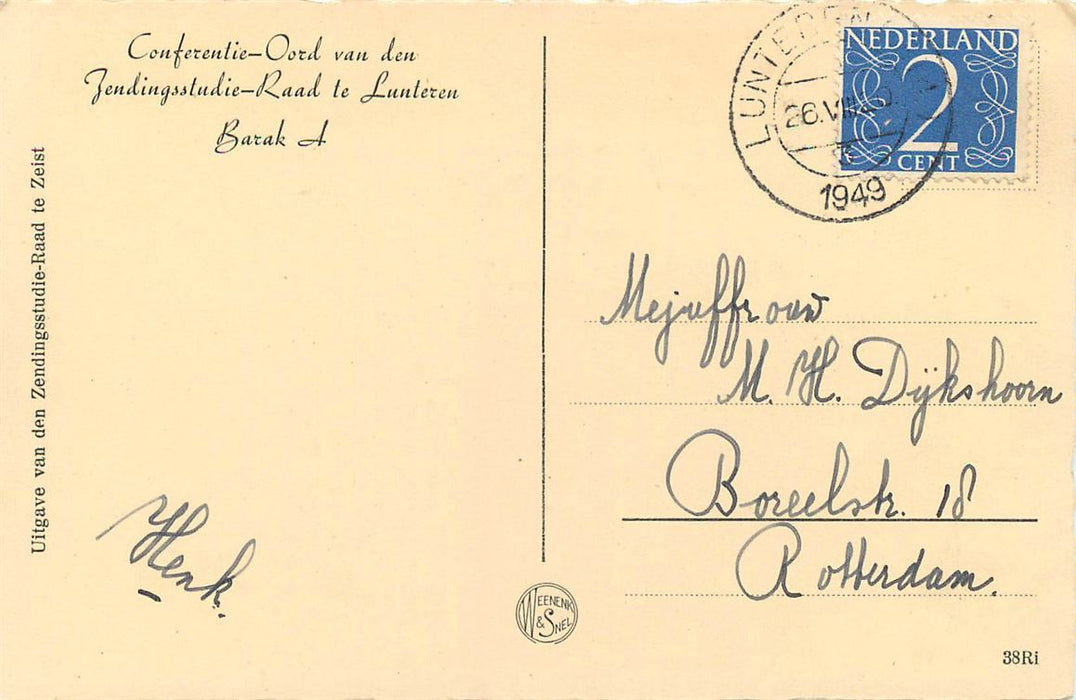 Conferentie-Oord van den
Zendingsstudie-Raad te Lunteren
Barak A
Uitgave van den Zendingsstudie-Raad te Zeist
LUNTEREN
26.VIII
1949
NEDERLAND
2
CENT
Mejuffrouw
M. H. Dijkshoorn
Boreelstr. 18
Rotterdam.
Henk.
WEENENK
& SNEL
38Ri